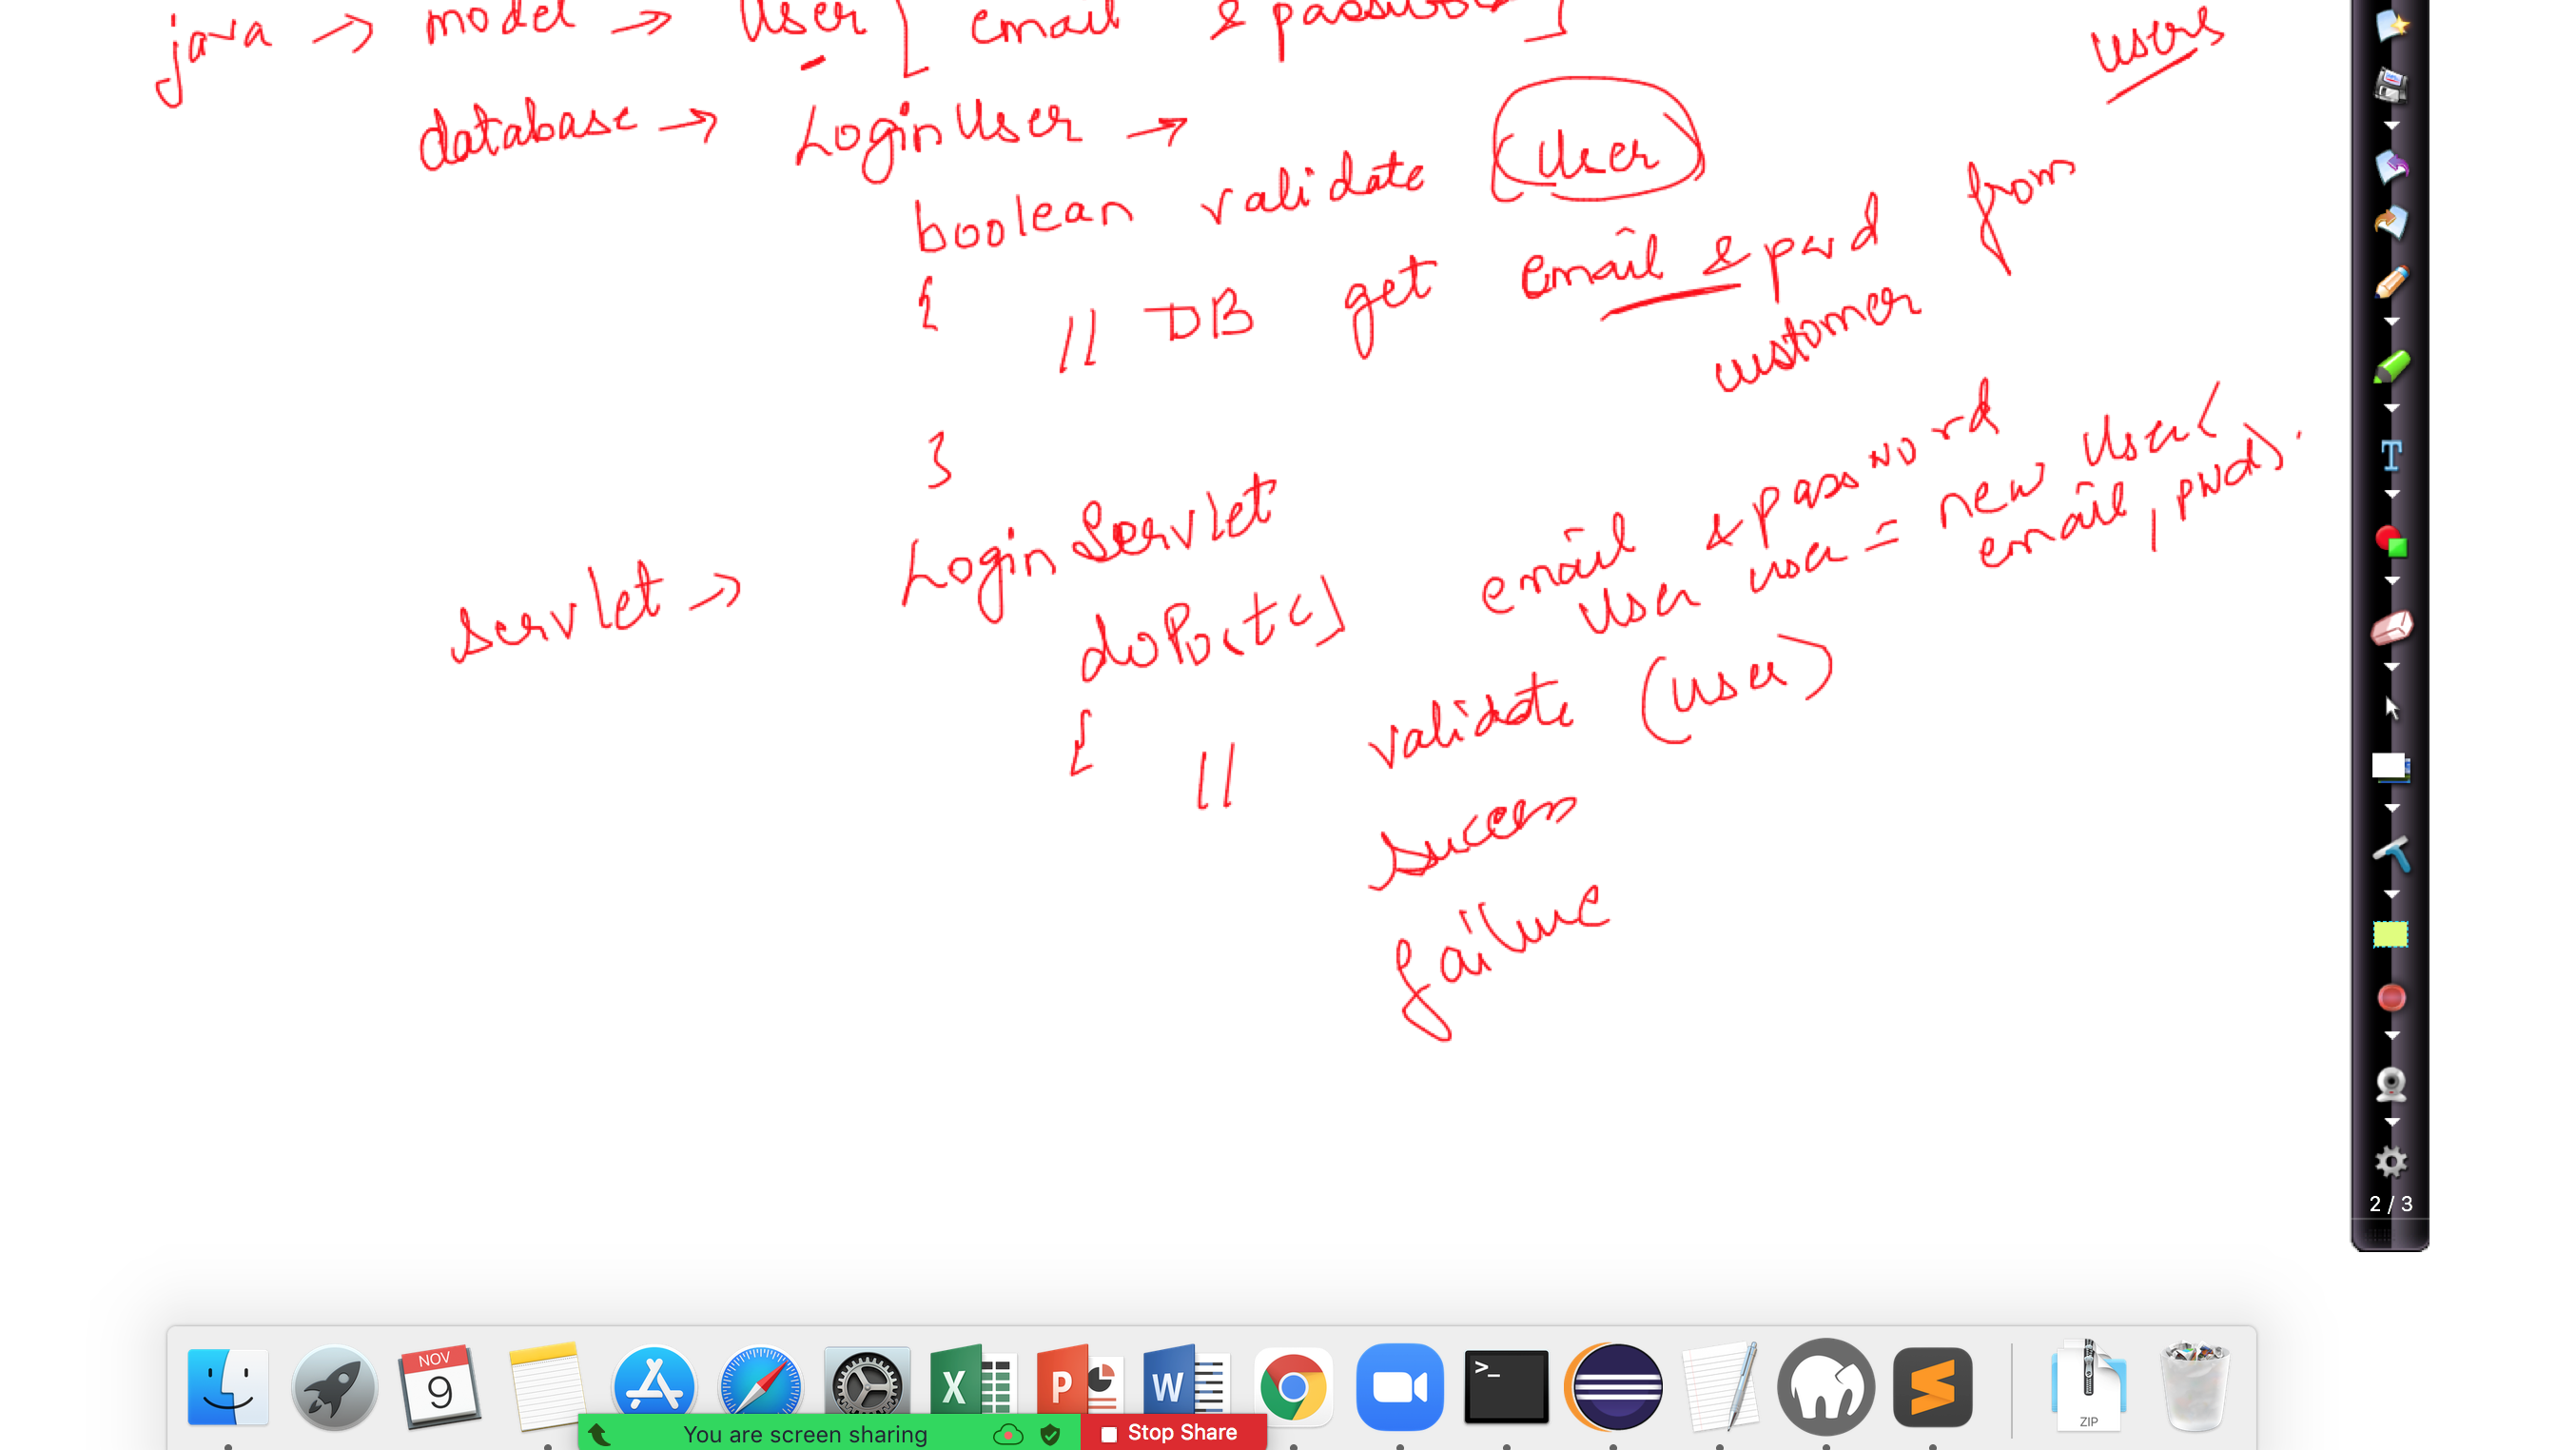 java → model → User [ email & password ]
users
database → LoginUser →
boolean validate (User)
{
// DB get email & pwd from
customer
}
servlet → LoginServlet
email & password
User user = new User(
email, pwd).
doPost()
{
// validate (user)
success
failure
2 / 3
NOV
9
X
P
W
>_
ZIP
You are screen sharing
Stop Share